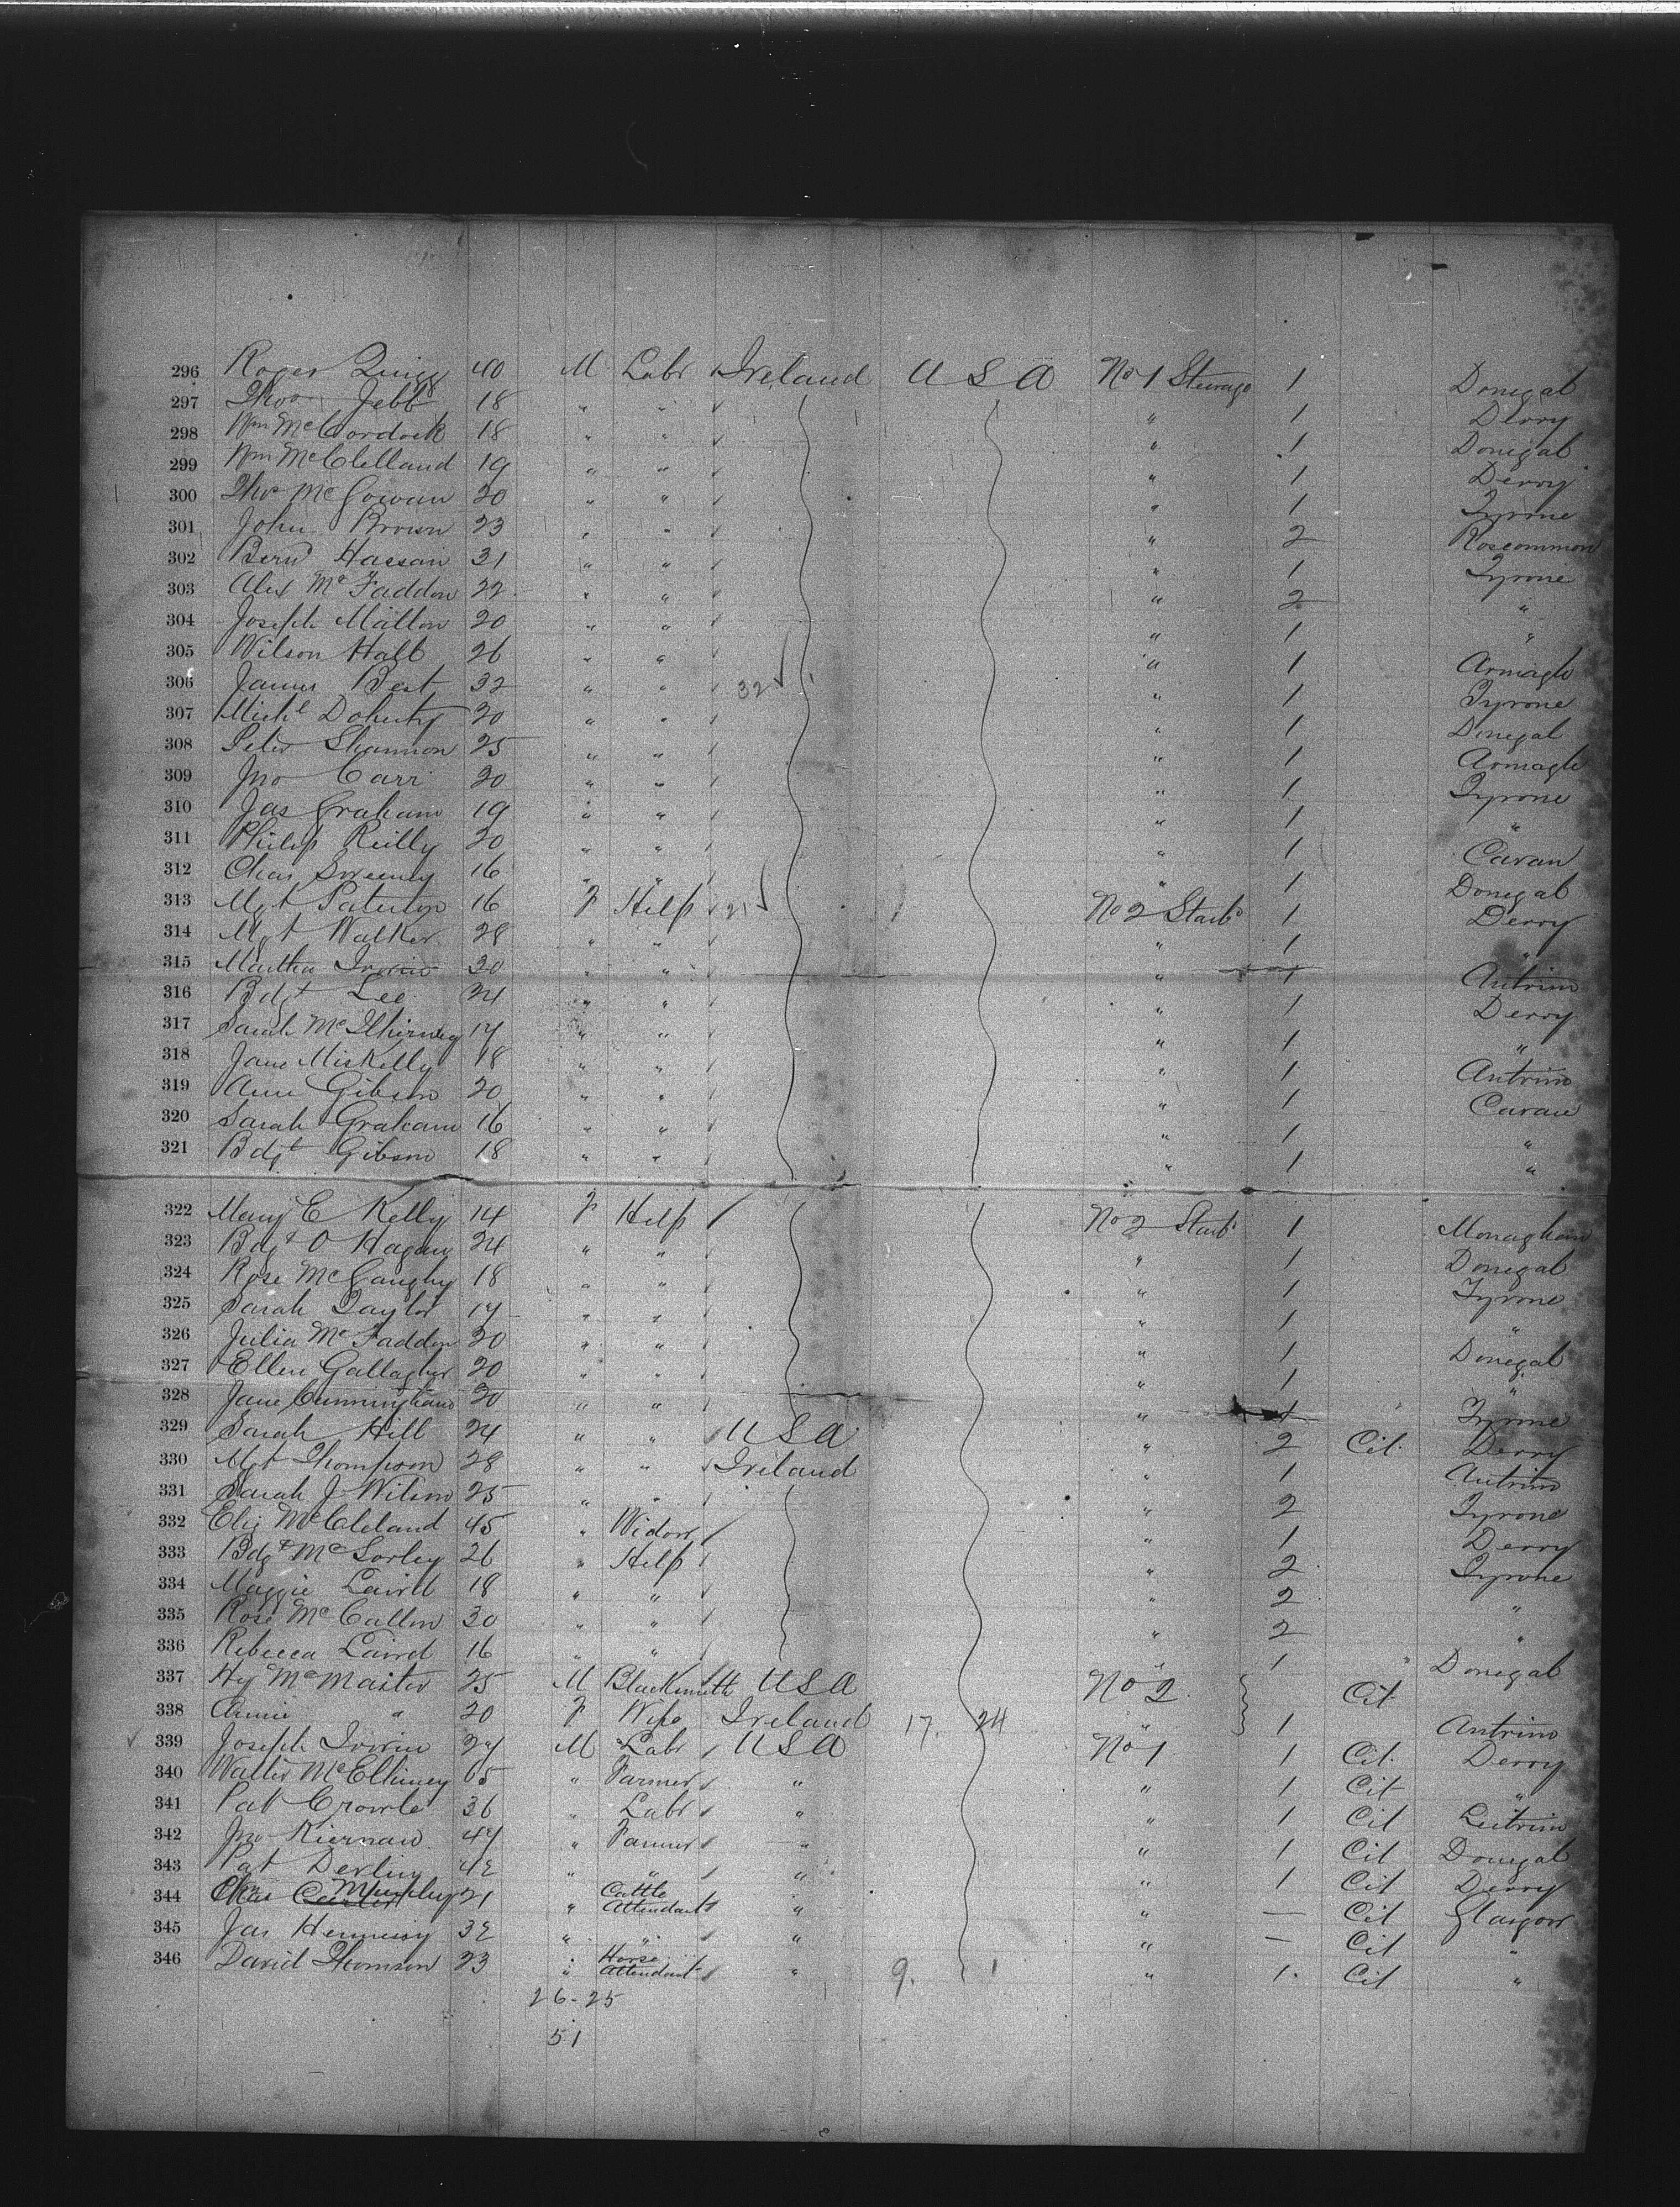 296 Roger Quigg 40 M Labr Ireland U S A No 1 Steerage 1 Donegal
297 Thos Jebb 18 " " " 1 Derry
298 Wm McCordock 18 " " " 1 Donegal
299 Wm McClelland 19 " " " 1 Derry
300 Thos McGowan 20 " " " 1 Tyrone
301 John Brown 23 " " " 2 Roscommon
302 Bernd Hassan 31 " " " 1 Tyrone
303 Alex McFadden 22 " " " 2 "
304 Joseph Mallon 20 " " " 1 "
305 Wilson Hall 26 " " " 1 Armagh
306 James Best 32 " " 32 " 1 Tyrone
307 Michl Doherty 20 " " " 1 Donegal
308 Peter Shannon 25 " " " 1 Armagh
309 Jno Carr 20 " " " 1 Tyrone
310 Jas Graham 19 " " " 1 "
311 Philip Reilly 20 " " " 1 Cavan
312 Chas Sweeney 16 " " " 1 Donegal
313 Mgt 16 F Help 21 No 2 Starbd 1 Derry
314 Mgt Walker 28 " " " 1 "
315 Martha Irwin 30 " " " 1 Antrim
316 Bdgt Lee 24 " " " 1 Derry
317 Sarah 17 " " " 1 "
318 Jane Miskelly 18 " " " 1 Antrim
319 Ann Gibson 20 " " " 1 Cavan
320 Sarah Graham 16 " " " 1 "
321 Bdgt Gibson 18 " " " 1 "
322 Mary E Kelly 14 F Help No 2 Starbd 1 Monaghan
323 Bdgt O Hagan 24 " " " 1 Donegal
324 Rose McGaughy 18 " " " 1 Tyrone
325 Sarah Taylor 17 " " " 1 "
326 Julia McFadden 20 " " " 1 Donegal
327 Ellen Gallagher 20 " " " 1 "
328 Jane Cunningham 20 " " " 1 Tyrone
329 Sarah Hill 24 " " U S A " 2 Cit. Derry
330 Mgt Thompson 28 " " Ireland " 1 Antrim
331 Sarah J Wilson 25 " " " 2 Tyrone
332 Eliz McCleland 45 " Widow " 1 Derry
333 Bdgt McSorley 26 " Help " 2 Tyrone
334 Maggie Laird 18 " " " 2 "
335 Rose McCallon 30 " " " 2 "
336 Rebecca Laird 16 " " " 1 Donegal
337 Hy McMaster 25 M Blacksmith U S A No 2 Cit
338 Annie " 20 F Wife Ireland 17. 24 " 1 Antrim
339 Joseph Irwin 27 M Labr U S A No 1 1 Cit. Derry
340 Walter McElhiney 65 " Farmer " " 1 Cit "
341 Pat Crowle 36 " Labr " " 1 Cit Leitrim
342 Jno Kiernan 47 " Farmer " " 1 Cit Donegal
343 Pat Derling 42 " " " " 1 Cit Derry
344 Murphy 21 " Cattle Attendant " " — Cit Glasgow
345 Jas Hennessy 32 " " " " — Cit "
346 David Thomson 23 " Horse Attendant " 9. 1 " 1. Cit "
26-25
51